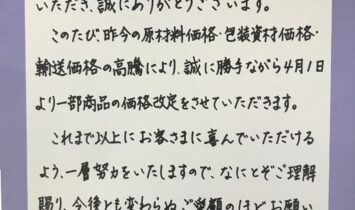 いただき、誠にありがとうございます。
このたび、昨今の原材料価格・包装資材価格・
輸送価格の高騰により、誠に勝手ながら4月1日
より一部商品の価格改定をさせていただきます。
これまで以上にお客さまに喜んでいただける
よう、一層努力をいたしますので、なにとぞご理解
賜り、今後とも変わらぬご愛顧のほどお願い